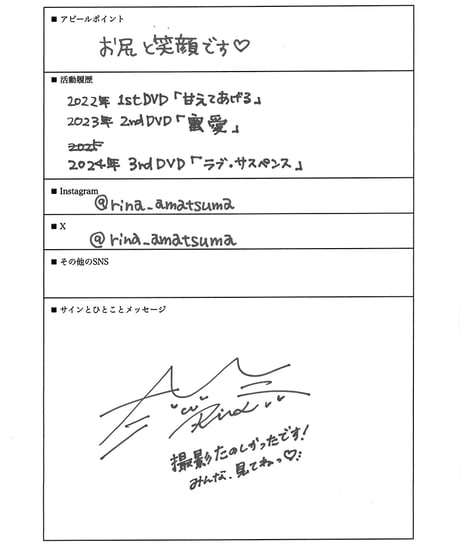 ■ アピールポイント
お尻と笑顔です♡
■ 活動履歴
2022年 1stDVD「甘えてあげる」
2023年 2ndDVD「蜜愛」
2025
2024年 3rdDVD「ラブ・サスペンス」
■ Instagram
@rina_amatsuma
■ X
@rina_amatsuma
■ その他のSNS
■ サインとひとことメッセージ
Rina
撮影たのしかったです!
みんな、見てねっ♡